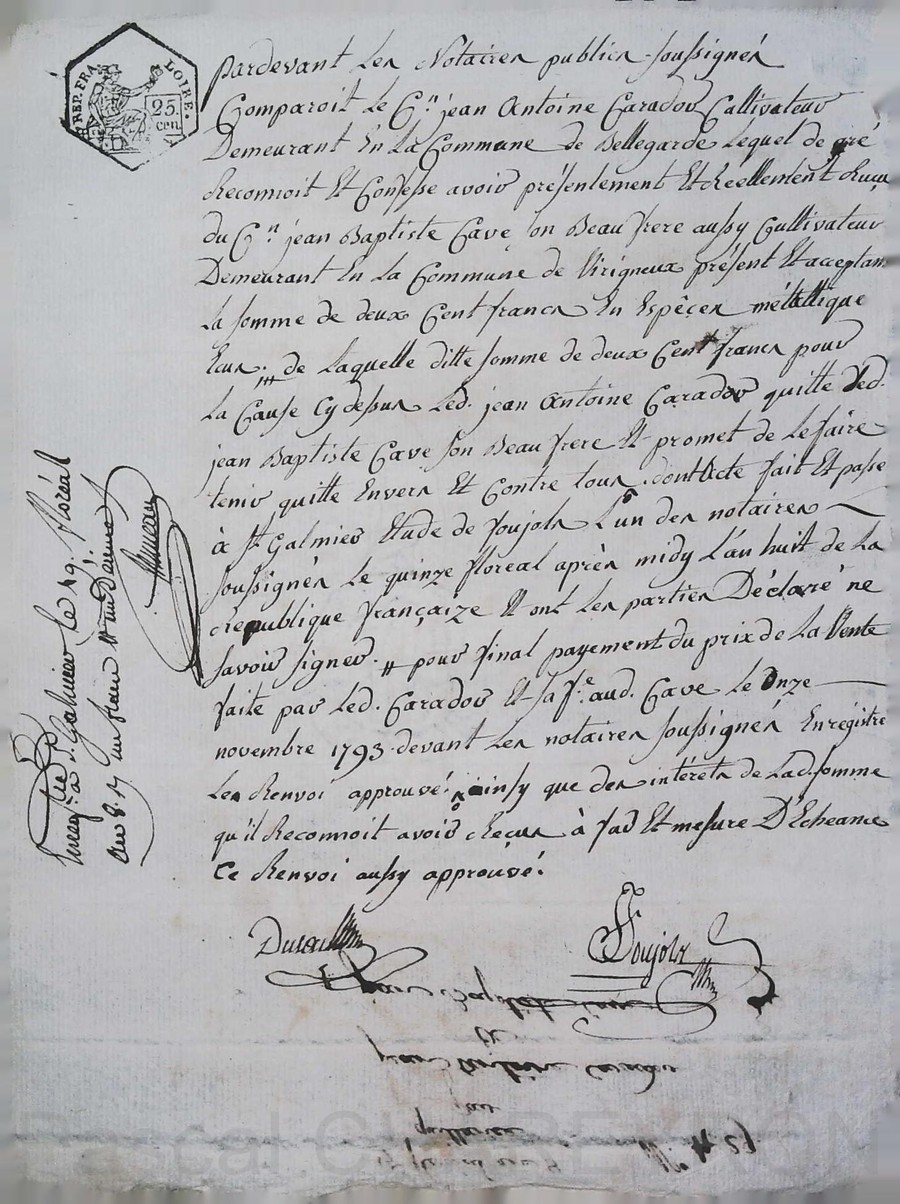 REP. FRA. LOIRE.
25. CEN.
Pardevant Les Notaires publics soussignés
Comparoit Le C.n jean Antoine Carados Cultivateur
Demeurant En La Commune de Bellegarde Lequel de gré
Reconnoit Et Confesse avoir présentement Et Reellement Reçu
du C.n jean Baptiste Cave son Beau frere aussy Cultivateur
Demeurant En La Commune de Virigneux présent Et acceptan
La somme de deux Cent francs En Espêces métallique
de Laquelle ditte somme de deux Cent francs pour
La Cause Cy dessus Led. jean Antoine Carados quitte Led.
jean Baptiste Cave son Beau frere Et promet de Le faire
tenir quitte Envers Et Contre tous. dont Acte fait Et passé
à St. Galmier Etude de Soujols L'un des notaires
soussignés Le quinze floreal après midy L'an huit de La
république françaize Et ont Les parties Déclaré ne
savoir signer. # pour final payement du prix de La Vente
faite par Led. Carados Et sa f.e aud. Cave Le Onze
novembre 1793 devant Les notaires soussignés Enregistré
Les Renvoi approuvé. ainsy que des intérêts de Lad. somme
qu'il Reconnoit avoir Reçus à fur Et mesure D'Echeance
Ce Renvoi aussy approuvé.
Soujols
Enreg.é à St. Galmier Le 19. floréal
an 8. R un franc
jean Baptiste Cave
jean Antoine Carados
par
quittance
N.o 29